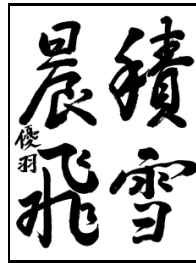 積雪
晨飛
優羽